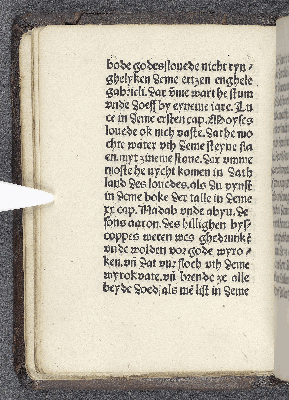 bode godes louede nicht ryn⸗
ghelyken deme ertzen enghele
gabrieli. dar vm̄e wart he stum
vnde doeff by eyneme iare. Lu
ce in deme ersten cap. Moyses
louede ok nich vaste. dat he mo
chte water vth deme steyne sla
en. myt zineme stone. dar vmme
moste he nycht komen in dath
land des louedes. als du vynst
in deme boke der talle in deme
xx cap. Nadab vnde abyu. de
sons aaron. des hillighen bys⸗
coppes weren wes ghedrunkē
vnde wolden vor gode wyro⸗
ken. vn̄ dat vur sloch vth deme
wyrokvate. vn̄ brende ze alle
beyde doed. als mē list in deme